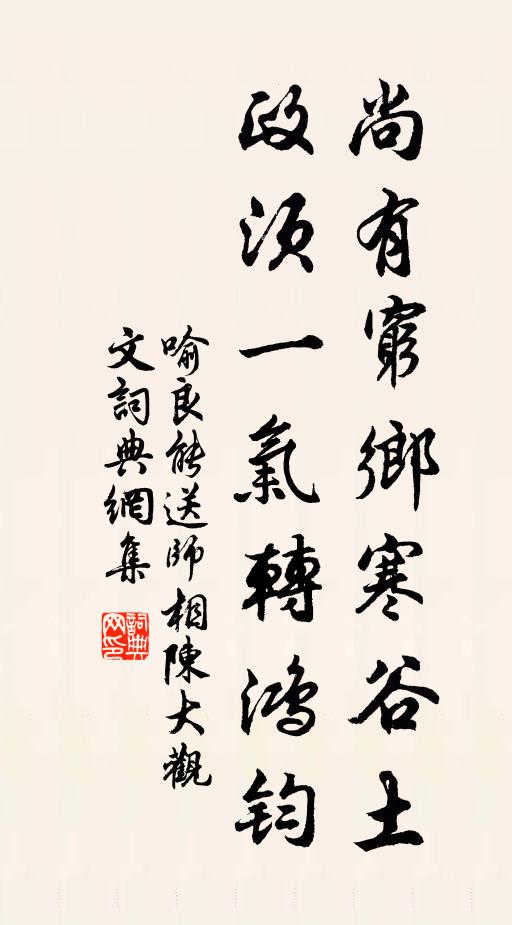 尚有窮鄉寒谷土
政須一氣轉鴻鈞
喻良能送師相陳大觀
文詞典網集
詞典
网印